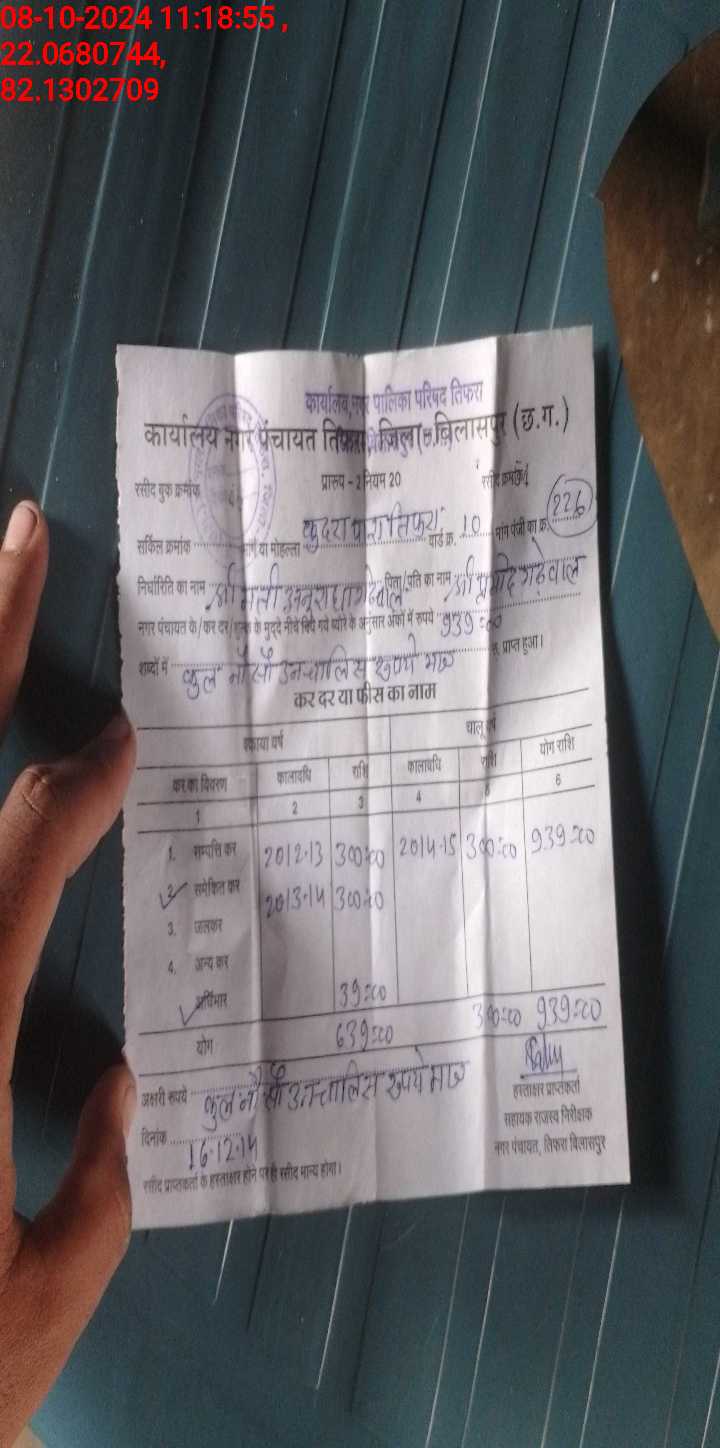 08-10-2024 11:18:55 ,
22.0680744,
82.1302709
कार्यालय नगर पालिका परिषद तिफरा
कार्यालय नगर पंचायत तिफरा जिला बिलासपुर (छ.ग.)
रसीद बुक क्रमांक प्रारूप - 2 नियम 20 रसीद क्रमांक
सर्किल क्रमांक मार्ग या मोहल्ला कुदरा पारा तिफरा वार्ड क्र. 10 मांग पंजी का क्र. 226
निर्धारिति का नाम श्रीमती अनुराधा गढेवाल पिता/पति का नाम श्री प्रमोद गढेवाल
नगर पंचायत के/कर दर/शुल्क के मुद्दे नीचे दिये गये ब्यौरे के अनुसार अंकों में रुपये 939=00
शब्दों में कुल नौ सौ उनचालिस रुपये मात्र रु. प्राप्त हुआ।
कर दर या फीस का नाम
बकाया वर्ष चालू वर्ष
कर का विवरण कालावधि राशि कालावधि राशि योग राशि
1 2 3 4 5 6
1. सम्पत्ति कर 2012-13 300=00 2014-15 300=00 939=00
2. समेकित कर 2013-14 300=00
3. जलकर
4. अन्य कर
अधिभार 39=00
योग 639=00 300=00 939=00
अक्षरी रुपये कुल नौ सौ उनचालिस रुपये मात्र
हस्ताक्षर प्राप्तकर्ता
दिनांक 16.12.14
सहायक राजस्व निरीक्षक
नगर पंचायत, तिफरा बिलासपुर
रसीद प्राप्तकर्ता के हस्ताक्षर होने पर ही रसीद मान्य होगा।